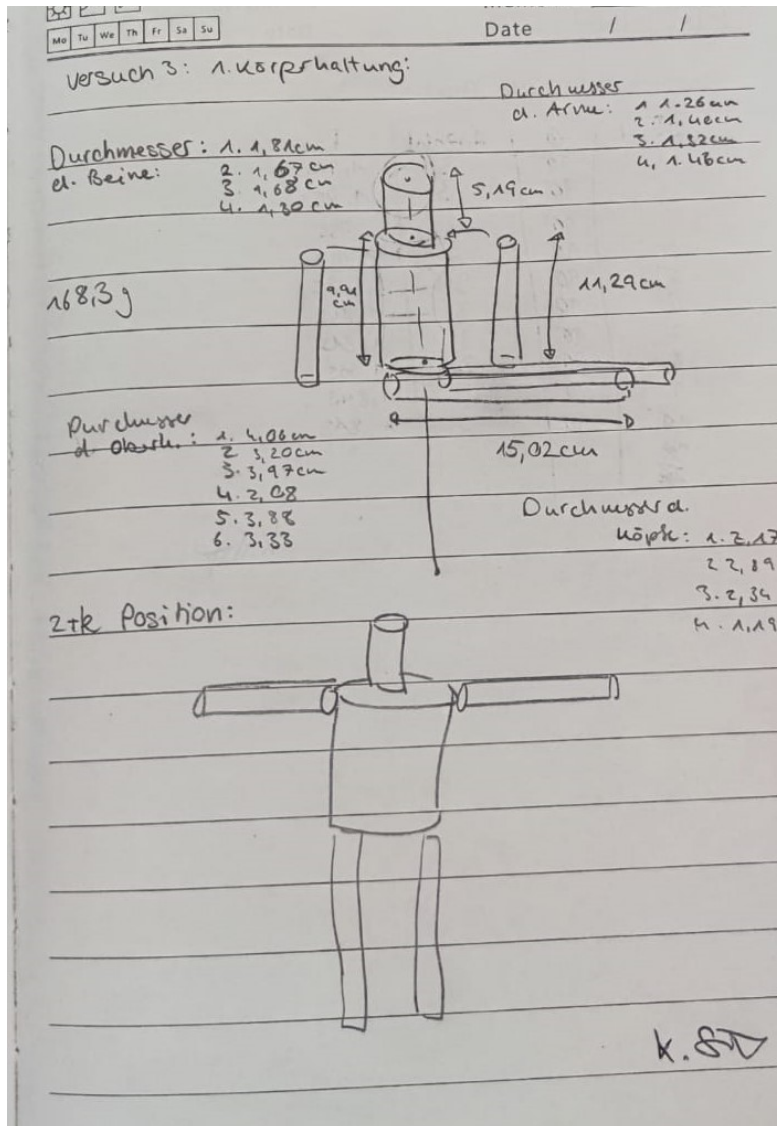 Mo Tu We Th Fr Sa Su
Date / /
Versuch 3: 1. Körperhaltung:
Durchmesser
d. Arme: 1 1.26cm
2. 1,40cm
3. 1,32cm
4, 1.46cm
Durchmesser: 1. 1,81cm
d. Beine: 2. 1,67cm
3 1,68 cm
4. 1,30 cm
5,19cm
168,3g
cm
11,29cm
15,02cm
Durchmesser
d. Oberk.: 1. 4,06cm
2 3,20cm
3. 3,97cm
4. 2,08
5. 3,88
6. 3,33
Durchmesser d.
Kopfs: 1. 2,17
2 2,89
3. 2,34
4. 1,19
2te Position: